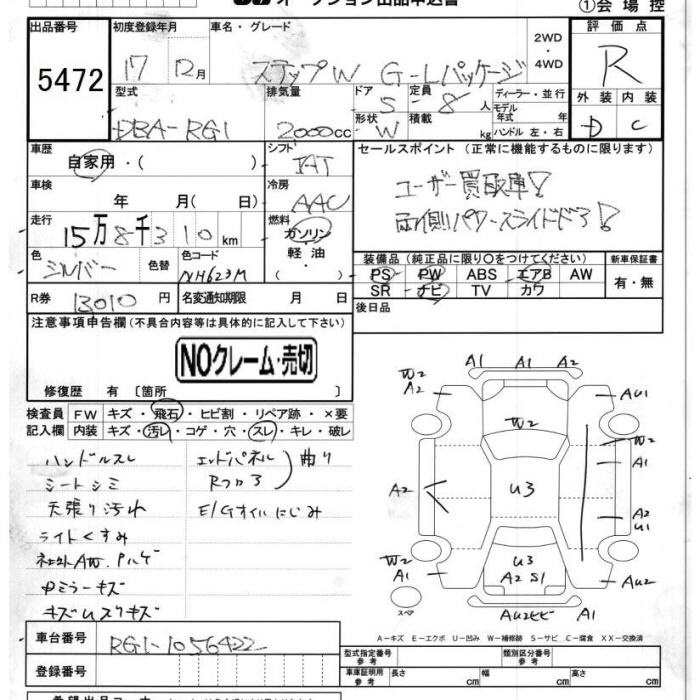 オークション出品申込書
①会場控
出品番号 5472
初度登録年月 17 12月
車名・グレード ステップW G-Lパッケージ
2WD
4WD
評価点 R
外装 D
内装 C
型式 DBA-RG1
排気量 2000cc
ドア 5
形状 W
定員 8人
積載 kg
ディーラー・並行
モデル年式 年
ハンドル 左・右
車歴 自家用・( )
シフト IAT
セールスポイント (正常に機能するものに限ります)
ユーザー買取車!
両側パワースライドドア!
車検 年 月( 日)
冷房 AAC
走行 15万8千310km
燃料 ガソリン
軽油
・
色 シルバー 色替
色コード NH623M
装備品 (純正品に限り○をつけてください)
新車保証書
PS PW ABS エアB AW
有・無
SR ナビ TV カワ
R券 13010円
名変通知期限 月 日
後日品
注意事項申告欄 (不具合内容等は具体的に記入して下さい)
NOクレーム・売切
修復歴 有 〔箇所 〕
検査員記入欄
FW キズ・飛石・ヒビ割・リペア跡・×要
内装 キズ・汚レ・コゲ・穴・スレ・キレ・破レ
ハンドルスレ
シートシミ
天張り汚れ
ライトくすみ
社外AW.Pハゲ
Dミラーキズ
キズUスリキズ
エンドパネル
Rフロア
曲り
E/Gオイルにじみ
A1 A1 A2
W2
A2
AU1
W2
W2
A1
A2
U3
A2
U1
W2
A1
U3
A2 S1
AU2
AU2ヒビ A1
スペア
A-キズ E-エクボ U-凹み W-補修跡 S-サビ C-腐食 XX-交換済
車台番号 RG1-1056422
登録番号
型式指定番号 参考
類別区分番号 参考
車庫証明用 参考 長さ cm 幅 cm 高さ cm